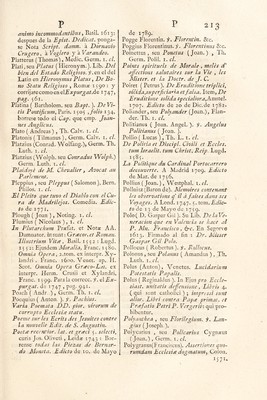 P
P
213
animi incommoditatibus, Basil. 1613:
despues de la Epist. Dedicat. ponga-
se Nota Script. damn. à Dornavio
Cragero, à Vaglero y à Varandeo.
Platterus (Thomas), Medic. Germ. 1. cl.
Plati, seu Platus (Hieronym.). Lib. Del
bien del Estado Religioso. Y en el del
Latin de Hieronymus Platus, De Bo-
no Status Religiosi, Romæ 1590: y
corrijase como en el Expurgat. de 1747,
pag. 561.
Platina (Bartholom. seu Bapt.). De Vi-
tis Pontificum, Paris. 1505, folio 19,
borrese todo el Cap. que emp. Joan-
nes Anglicus.
Plato (Andreas), Th. Calv. 1. cl.
Platonis (Thimanus), Germ. Calv. 1. cl.
Platzius (Conrad. Wolfang.), Germ. Th.
Luth. 1. cl.
Platzius (Wolph. seu Conradus Wolph.)
Germ. Luth. 1. cl.
Plaidoyé de M. Chevalier, Avocat au
Parlement.
Pleppius, seu Plepped (Salomon), Bern.
Pictor. 1. cl.
El Pleito que puso el Diablo con el Cu-
ra de Madrilejos. Comedia. Edic-
to de 1774.
Plough (Joan), Noting. 1. cl.
Plumius (Nicolaus), 1. cl.
In Plutarchum Dialec. et Nota AA.
Damnator. invent: Græcor. et Roman.
Illustrium Vitæ, Basil. 1552: Lugd.
1552: Ejusdem Moralia, Franc. 1580.
Omnia Opera, cum ex interp. Xy-
landri, Franc. 1600. Venet. ap. H.
Scot. Omnia Opera Græco-Lat. ex
interpr. Herm. Crusii et Xylandri,
Franc. 1599. Para la correc. V. el Ex-
purgat. de 1747, pag. 941.
Poach (Andr.), Germ. Th. 1. cl.
Pocquius (Anton.). V. Pochius.
Varia Poemata DD. pior. virorum de
corrupto Ecclesiæ statu.
Poesie sur les Ecrits des Jesuites contre
la nouvelle Edit. de S. Augustin.
Poetæ recentior. lat. et græci 5. select.,
curis Jos. Oliveti, Leidæ 1743: Bor-
rense todas las Piezas de Bernar-
do Moneta. Edicto de 20. de Mayo
de 1789.
Pogge Florentin. V. Florentin. &c.
Poggius Florentinus. V. Florentinus &c.
Poinettus, seu Ponetus (Joan.), Th.
Germ. Polit. 1. cl.
Points spirituels de Morale, melés d'
affections salutaires sur la Vie, les
Mister. et la Doctr. de J. C.
Poiret (Petrus). De Eruditione triplici,
solida, superficiaria et falsa. Item, De
Eruditione solida specialiora, Amstel.
1707. Edicto de 20 de Dic. de 1782.
Poliander, seu Polyander (Joan.), Flan-
der. Th. 1. cl.
Politianus (Joan. Angel.). V. Angelus
Politianus (Joan.).
Politi Lucas.
De Politia et Discipl. Civili et Eccles.
tum Israelit. tum Christ. Reip. Lugd.
1585.
La Politique du Cardinal Portocarrero
decouverte. A Madrid 1709. Edicto
de Mar. de 1756.
Pollius (Joan.), Wesphal. 1. cl.
Polinitz (Baron de). Memoires contenant
les observations qu'il a faites dans ses
Voyages. A Lond. 1747. 2. tom. Edic-
to de 13. de Mayo de 1759.
Polo (D. Gaspar Gil). Su Lib. De la Ve-
neracion que en Valencia se hace al
P. Mu. Francisco, &c. Impreso
1613. Firmado al fin: Dr. Micer
Gaspar Gil Polo.
Poltrotus (Robertus). V. Rollocus.
Polonus, seu Polanus (Amandus), Th.
Luth. 1. cl.
Polus (Anton), Venetus. Lucidarium
Potestatis Papalis.
Polus (Reginaldus). In Ejus Pro Eccle-
siast. unitatis defensione, Libri 4
(quem non cathechis.); impressi sunt
aliæ, Libri contra Papæ primat. et
Præfatio Petri P. Vergerii; qui pro-
hibentur.
Polyanthea, seu Florilegium. V. Lan-
gius (Joseph.).
Polycarius, seu Policarius Cygnaeus
(Joan.), Germ. 1. cl.
Polygranus (Franciscus). Assertiones quo-
rumdam Ecclesiæ dogmatum, Colon.
1571.